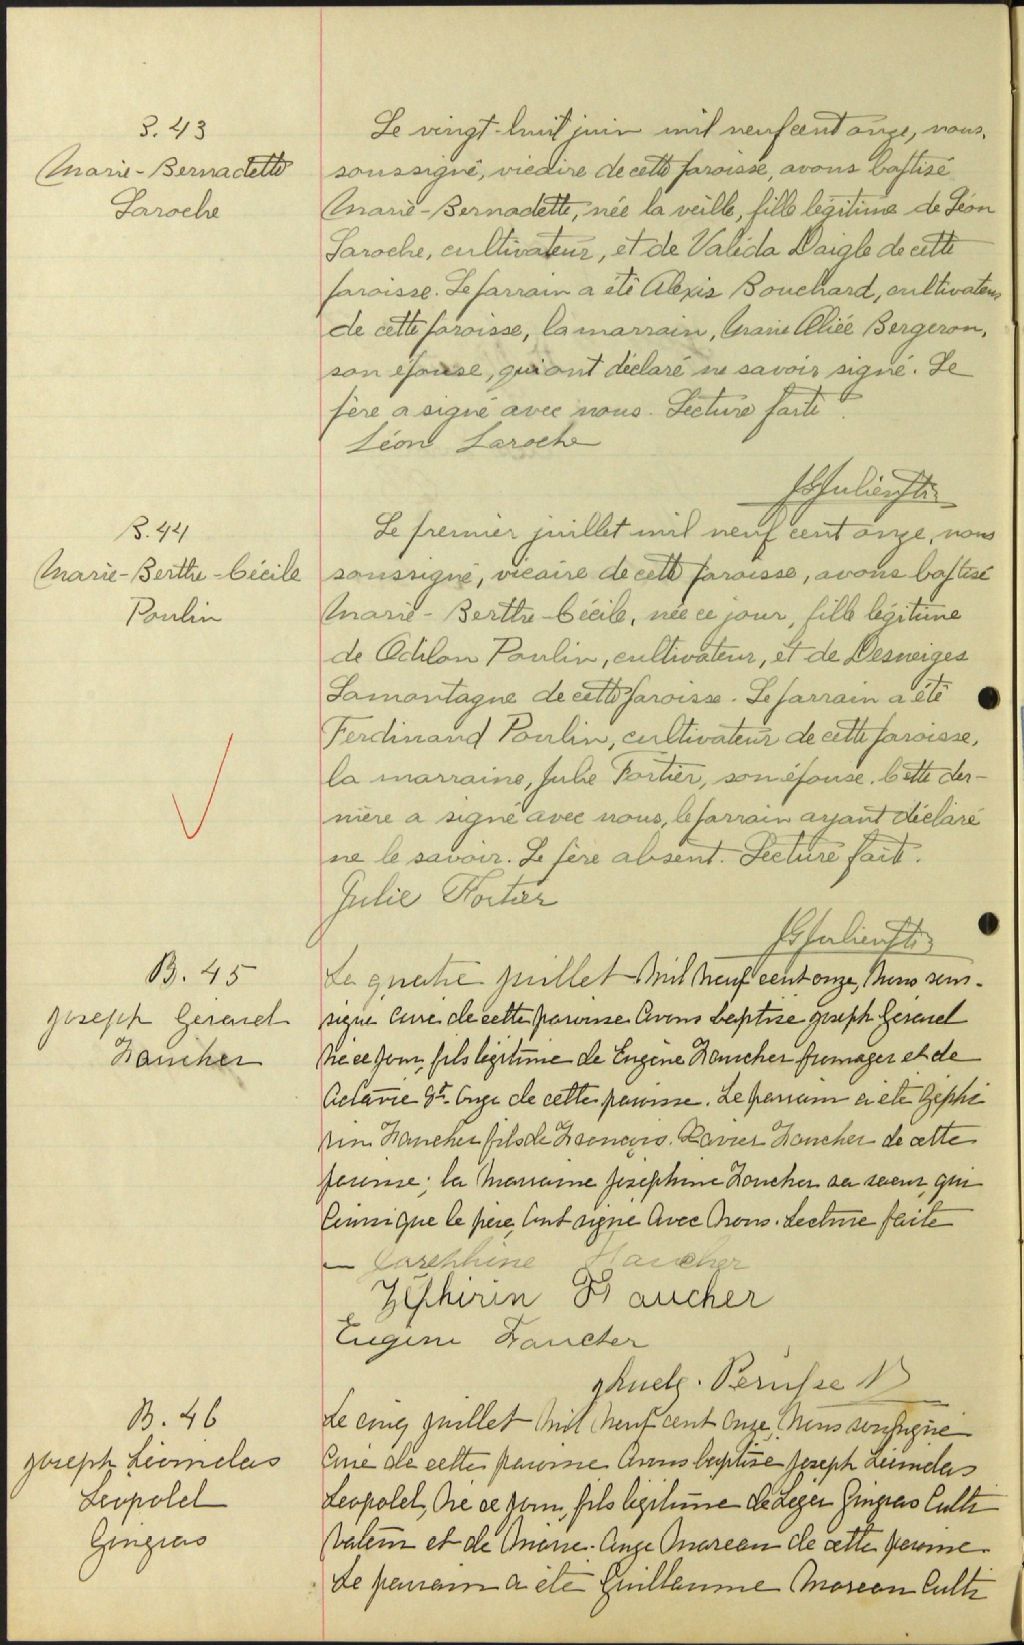 B. 43
Marie-Bernadette
Laroche
Le vingt-huit juin mil neuf cent onze, nous,
soussigné, vicaire de cette paroisse, avons baptisé
Marie-Bernadette, née la veille, fille légitime de Léon
Laroche, cultivateur, et de Valéda Daigle de cette
paroisse. Le parrain a été Alexis Bouchard, cultivateur
de cette paroisse, la marrain, Marie Bergeron,
son épouse, qui ont déclaré ne savoir signé. Le
père a signé avec nous. Lecture faite.
Léon Laroche
Julien Ptr
B. 44
Marie-Berthe-Cécile
Poulin
Le premier juillet mil neuf cent onze, nous
soussigné, vicaire de cette paroisse, avons baptisé
Marie-Berthe-Cécile, née ce jour, fille légitime
de Odilon Poulin, cultivateur, et de Desneiges
Lamontagne de cette paroisse. Le parrain a été
Ferdinand Poulin, cultivateur de cette paroisse,
la marraine, Julie Fortier, son épouse. Cette der-
nière a signé avec nous, le parrain ayant déclaré
ne le savoir. Le père absent. Lecture faite.
Julie Fortier
Julien Ptr
B. 45
Joseph Gérard
Faucher
Le quatre juillet mil neuf cent onze, Nous sous-
signé Curé de cette paroisse avons baptisé Joseph Gérard
né ce jour, fils légitime de Eugène Faucher fromager et de
Octavie St. Onge de cette paroisse. Le parrain a été Zéphi
rin Faucher fils de François Xavier Faucher de cette
paroisse; la marraine Joséphine Faucher sa soeur, qui
ainsi que le père, ont signé avec nous. Lecture faite
Josephine Faucher
Zéphirin Faucher
Eugène Faucher
Pérusse
B. 46
Joseph Léonidas
Léopold
Gingras
Le cinq juillet mil neuf cent onze, Nous soussigné
Curé de cette paroisse avons baptisé Joseph Léonidas
Léopold, né ce jour, fils légitime de Léger Gingras Culti
vateur et de Marie-Ange Moreau de cette paroisse.
Le parrain a été Guillaume Moreau Culti